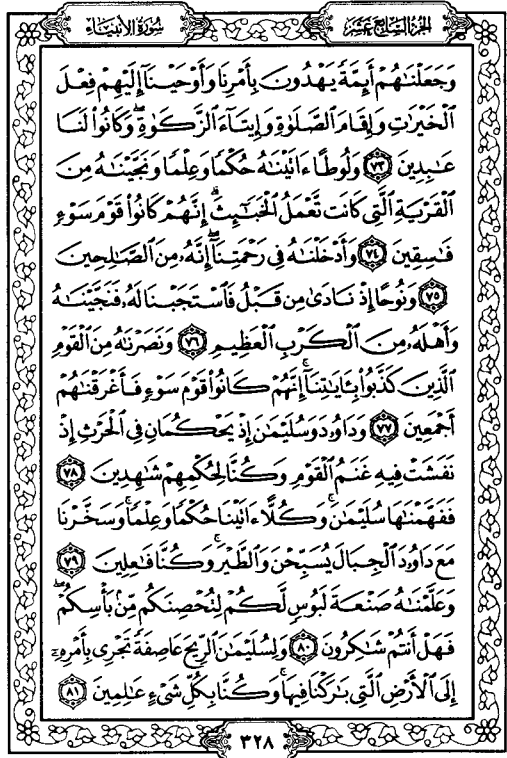 سُورَةُ الأَنبِيَاء
الجُزءُ السَّابِعَ عَشَرَ
وَجَعَلْنَٰهُمْ أَئِمَّةً يَهْدُونَ بِأَمْرِنَا وَأَوْحَيْنَآ إِلَيْهِمْ فِعْلَ
ٱلْخَيْرَٰتِ وَإِقَامَ ٱلصَّلَوٰةِ وَإِيتَآءَ ٱلزَّكَوٰةِ ۖ وَكَانُوا۟ لَنَا
عَٰبِدِينَ ﴿٧٣﴾ وَلُوطًا ءَاتَيْنَٰهُ حُكْمًا وَعِلْمًا وَنَجَّيْنَٰهُ مِنَ
ٱلْقَرْيَةِ ٱلَّتِى كَانَت تَّعْمَلُ ٱلْخَبَٰٓئِثَ ۗ إِنَّهُمْ كَانُوا۟ قَوْمَ سَوْءٍ
فَٰسِقِينَ ﴿٧٤﴾ وَأَدْخَلْنَٰهُ فِى رَحْمَتِنَآ ۖ إِنَّهُۥ مِنَ ٱلصَّٰلِحِينَ
﴿٧٥﴾ وَنُوحًا إِذْ نَادَىٰ مِن قَبْلُ فَٱسْتَجَبْنَا لَهُۥ فَنَجَّيْنَٰهُ
وَأَهْلَهُۥ مِنَ ٱلْكَرْبِ ٱلْعَظِيمِ ﴿٧٦﴾ وَنَصَرْنَٰهُ مِنَ ٱلْقَوْمِ
ٱلَّذِينَ كَذَّبُوا۟ بِـَٔايَٰتِنَآ ۚ إِنَّهُمْ كَانُوا۟ قَوْمَ سَوْءٍ فَأَغْرَقْنَٰهُمْ
أَجْمَعِينَ ﴿٧٧﴾ وَدَاوُۥدَ وَسُلَيْمَٰنَ إِذْ يَحْكُمَانِ فِى ٱلْحَرْثِ إِذْ
نَفَشَتْ فِيهِ غَنَمُ ٱلْقَوْمِ وَكُنَّا لِحُكْمِهِمْ شَٰهِدِينَ ﴿٧٨﴾
فَفَهَّمْنَٰهَا سُلَيْمَٰنَ ۚ وَكُلًّا ءَاتَيْنَا حُكْمًا وَعِلْمًا ۚ وَسَخَّرْنَا
مَعَ دَاوُۥدَ ٱلْجِبَالَ يُسَبِّحْنَ وَٱلطَّيْرَ ۚ وَكُنَّا فَٰعِلِينَ ﴿٧٩﴾
وَعَلَّمْنَٰهُ صَنْعَةَ لَبُوسٍ لَّكُمْ لِتُحْصِنَكُم مِّنۢ بَأْسِكُمْ ۖ
فَهَلْ أَنتُمْ شَٰكِرُونَ ﴿٨٠﴾ وَلِسُلَيْمَٰنَ ٱلرِّيحَ عَاصِفَةً تَجْرِى بِأَمْرِهِۦٓ
إِلَى ٱلْأَرْضِ ٱلَّتِى بَٰرَكْنَا فِيهَا ۚ وَكُنَّا بِكُلِّ شَىْءٍ عَٰلِمِينَ ﴿٨١﴾
٣٢٨